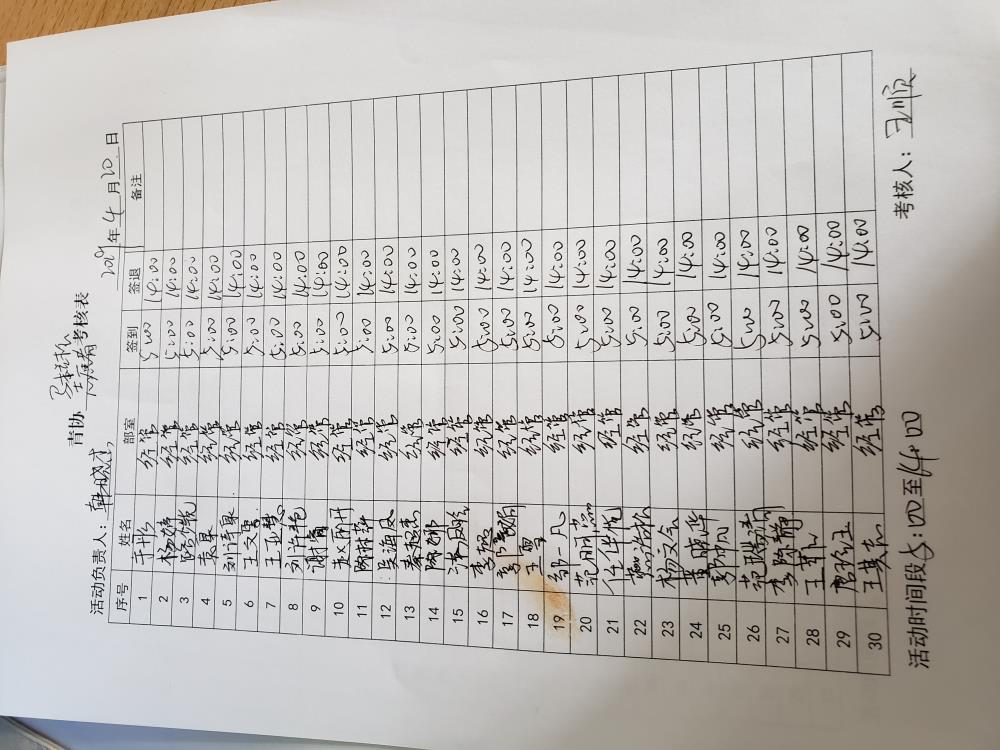 青协 马拉松志愿者考核表
活动负责人: 2019年4月20日
序号 姓名 部室 签到 签退 备注
1 经管 5:00 14:00
2 杨婷 经管 5:00 14:00
3 经管 5:00 14:00
4 袁泉 经管 5:00 14:00
5 经管 5:00 14:00
6 王文雪 经管 5:00 14:00
7 王业慧 经管 5:00 14:00
8 刘许艳 经管 5:00 14:00
9 谢雨 经管 5:00 14:00
10 赵丽丹 经管 5:00 14:00
11 陈林钰 经管 5:00 14:00
12 吴海风 经管 5:00 14:00
13 秦旭杰 经管 5:00 14:00
14 陈娜 经管 5:00 14:00
15 经管 5:00 14:00
16 李超 经管 5:00 14:00
17 经管 5:00 14:00
18 王雪 经管 5:00 14:00
19 邹一凡 经管 5:00 14:00
20 范明蕊 经管 5:00 14:00
21 任华悦 经管 5:00 14:00
22 经管 5:00 14:00
23 杨文会 经管 5:00 14:00
24 黄晓华 经管 5:00 14:00
25 郭凤 经管 5:00 14:00
26 范腾清 经管 5:00 14:00
27 李陈静 经管 5:00 14:00
28 经管 5:00 14:00
29 经管 5:00 14:00
30 王其志 经管 5:00 14:00
活动时间段5:00至14:00 考核人: 王顺